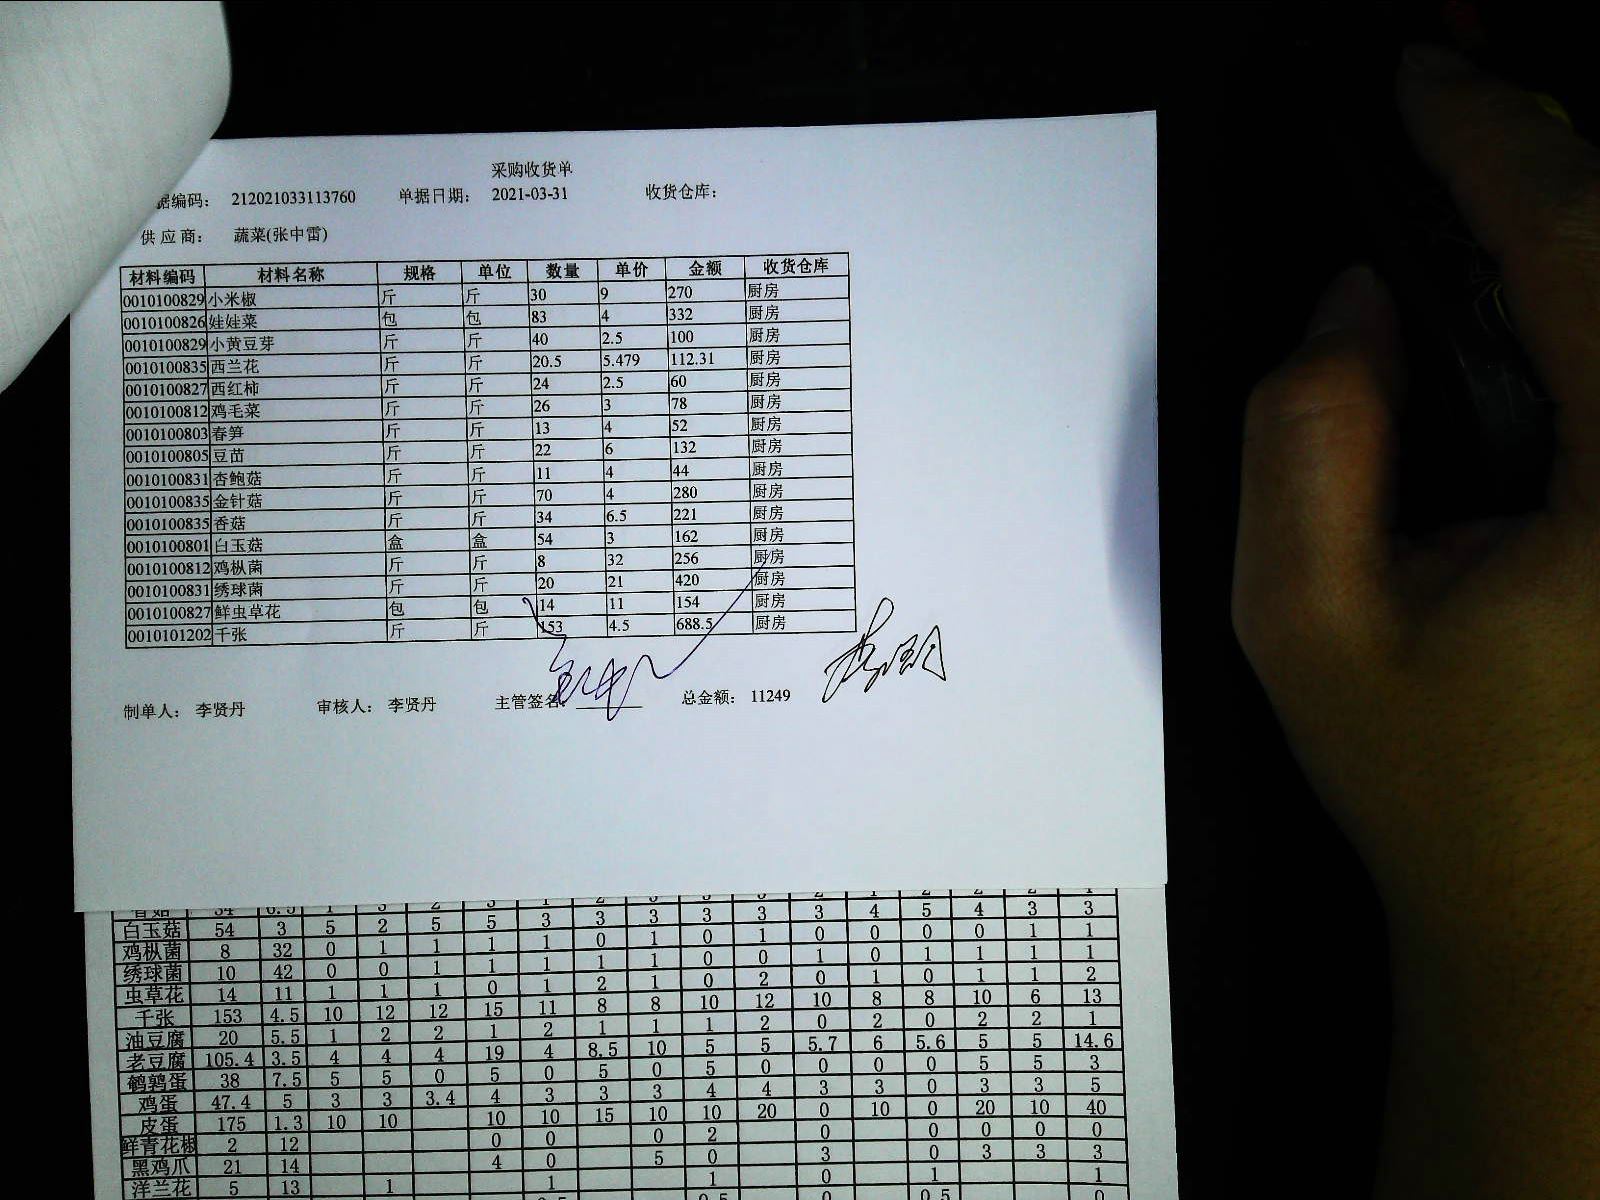 采购收货单
据编码： 212021033113760 单据日期： 2021-03-31 收货仓库：
供应商： 蔬菜(张中雷)
材料编码 材料名称 规格 单位 数量 单价 金额 收货仓库
0010100829 小米椒 斤 斤 30 9 270 厨房
0010100826 娃娃菜 包 包 83 4 332 厨房
0010100829 小黄豆芽 斤 斤 40 2.5 100 厨房
0010100835 西兰花 斤 斤 20.5 5.479 112.31 厨房
0010100827 西红柿 斤 斤 24 2.5 60 厨房
0010100812 鸡毛菜 斤 斤 26 3 78 厨房
0010100803 春笋 斤 斤 13 4 52 厨房
0010100805 豆苗 斤 斤 22 6 132 厨房
0010100831 杏鲍菇 斤 斤 11 4 44 厨房
0010100835 金针菇 斤 斤 70 4 280 厨房
0010100835 香菇 斤 斤 34 6.5 221 厨房
0010100801 白玉菇 盒 盒 54 3 162 厨房
0010100812 鸡枞菌 斤 斤 8 32 256 厨房
0010100831 绣球菌 斤 斤 20 21 420 厨房
0010100827 鲜虫草花 包 包 14 11 154 厨房
0010101202 千张 斤 斤 153 4.5 688.5 厨房
制单人： 李贤丹 审核人： 李贤丹 主管签名： 总金额： 11249
白玉菇 54 3 5 2 5 5 3 3 3 3 3 3 4 5 4 3 3
鸡枞菌 8 32 0 1 1 1 1 0 1 0 1 0 0 0 0 1 1
绣球菌 10 42 0 0 1 1 1 1 1 0 0 1 0 1 1 1 1
虫草花 14 11 1 1 1 0 1 2 1 0 2 0 1 0 1 1 2
千张 153 4.5 10 12 12 15 11 8 8 10 12 10 8 8 10 6 13
油豆腐 20 5.5 1 2 2 1 2 1 1 1 2 0 2 0 2 2 1
老豆腐 105.4 3.5 4 4 4 19 4 8.5 10 5 5 5.7 6 5.6 5 5 14.6
鹌鹑蛋 38 7.5 5 5 0 5 0 5 0 5 0 0 0 0 5 5 3
鸡蛋 47.4 5 3 3 3.4 4 3 3 3 4 4 3 3 0 3 3 5
皮蛋 175 1.3 10 10 10 10 15 10 10 20 0 10 0 20 10 40
鲜青花椒 2 12 0 0 0 2 0 0 0 0 0
黑鸡爪 21 14 4 0 5 0 3 0 3 3 3
洋兰花 5 13 1 1 1 0 1 1